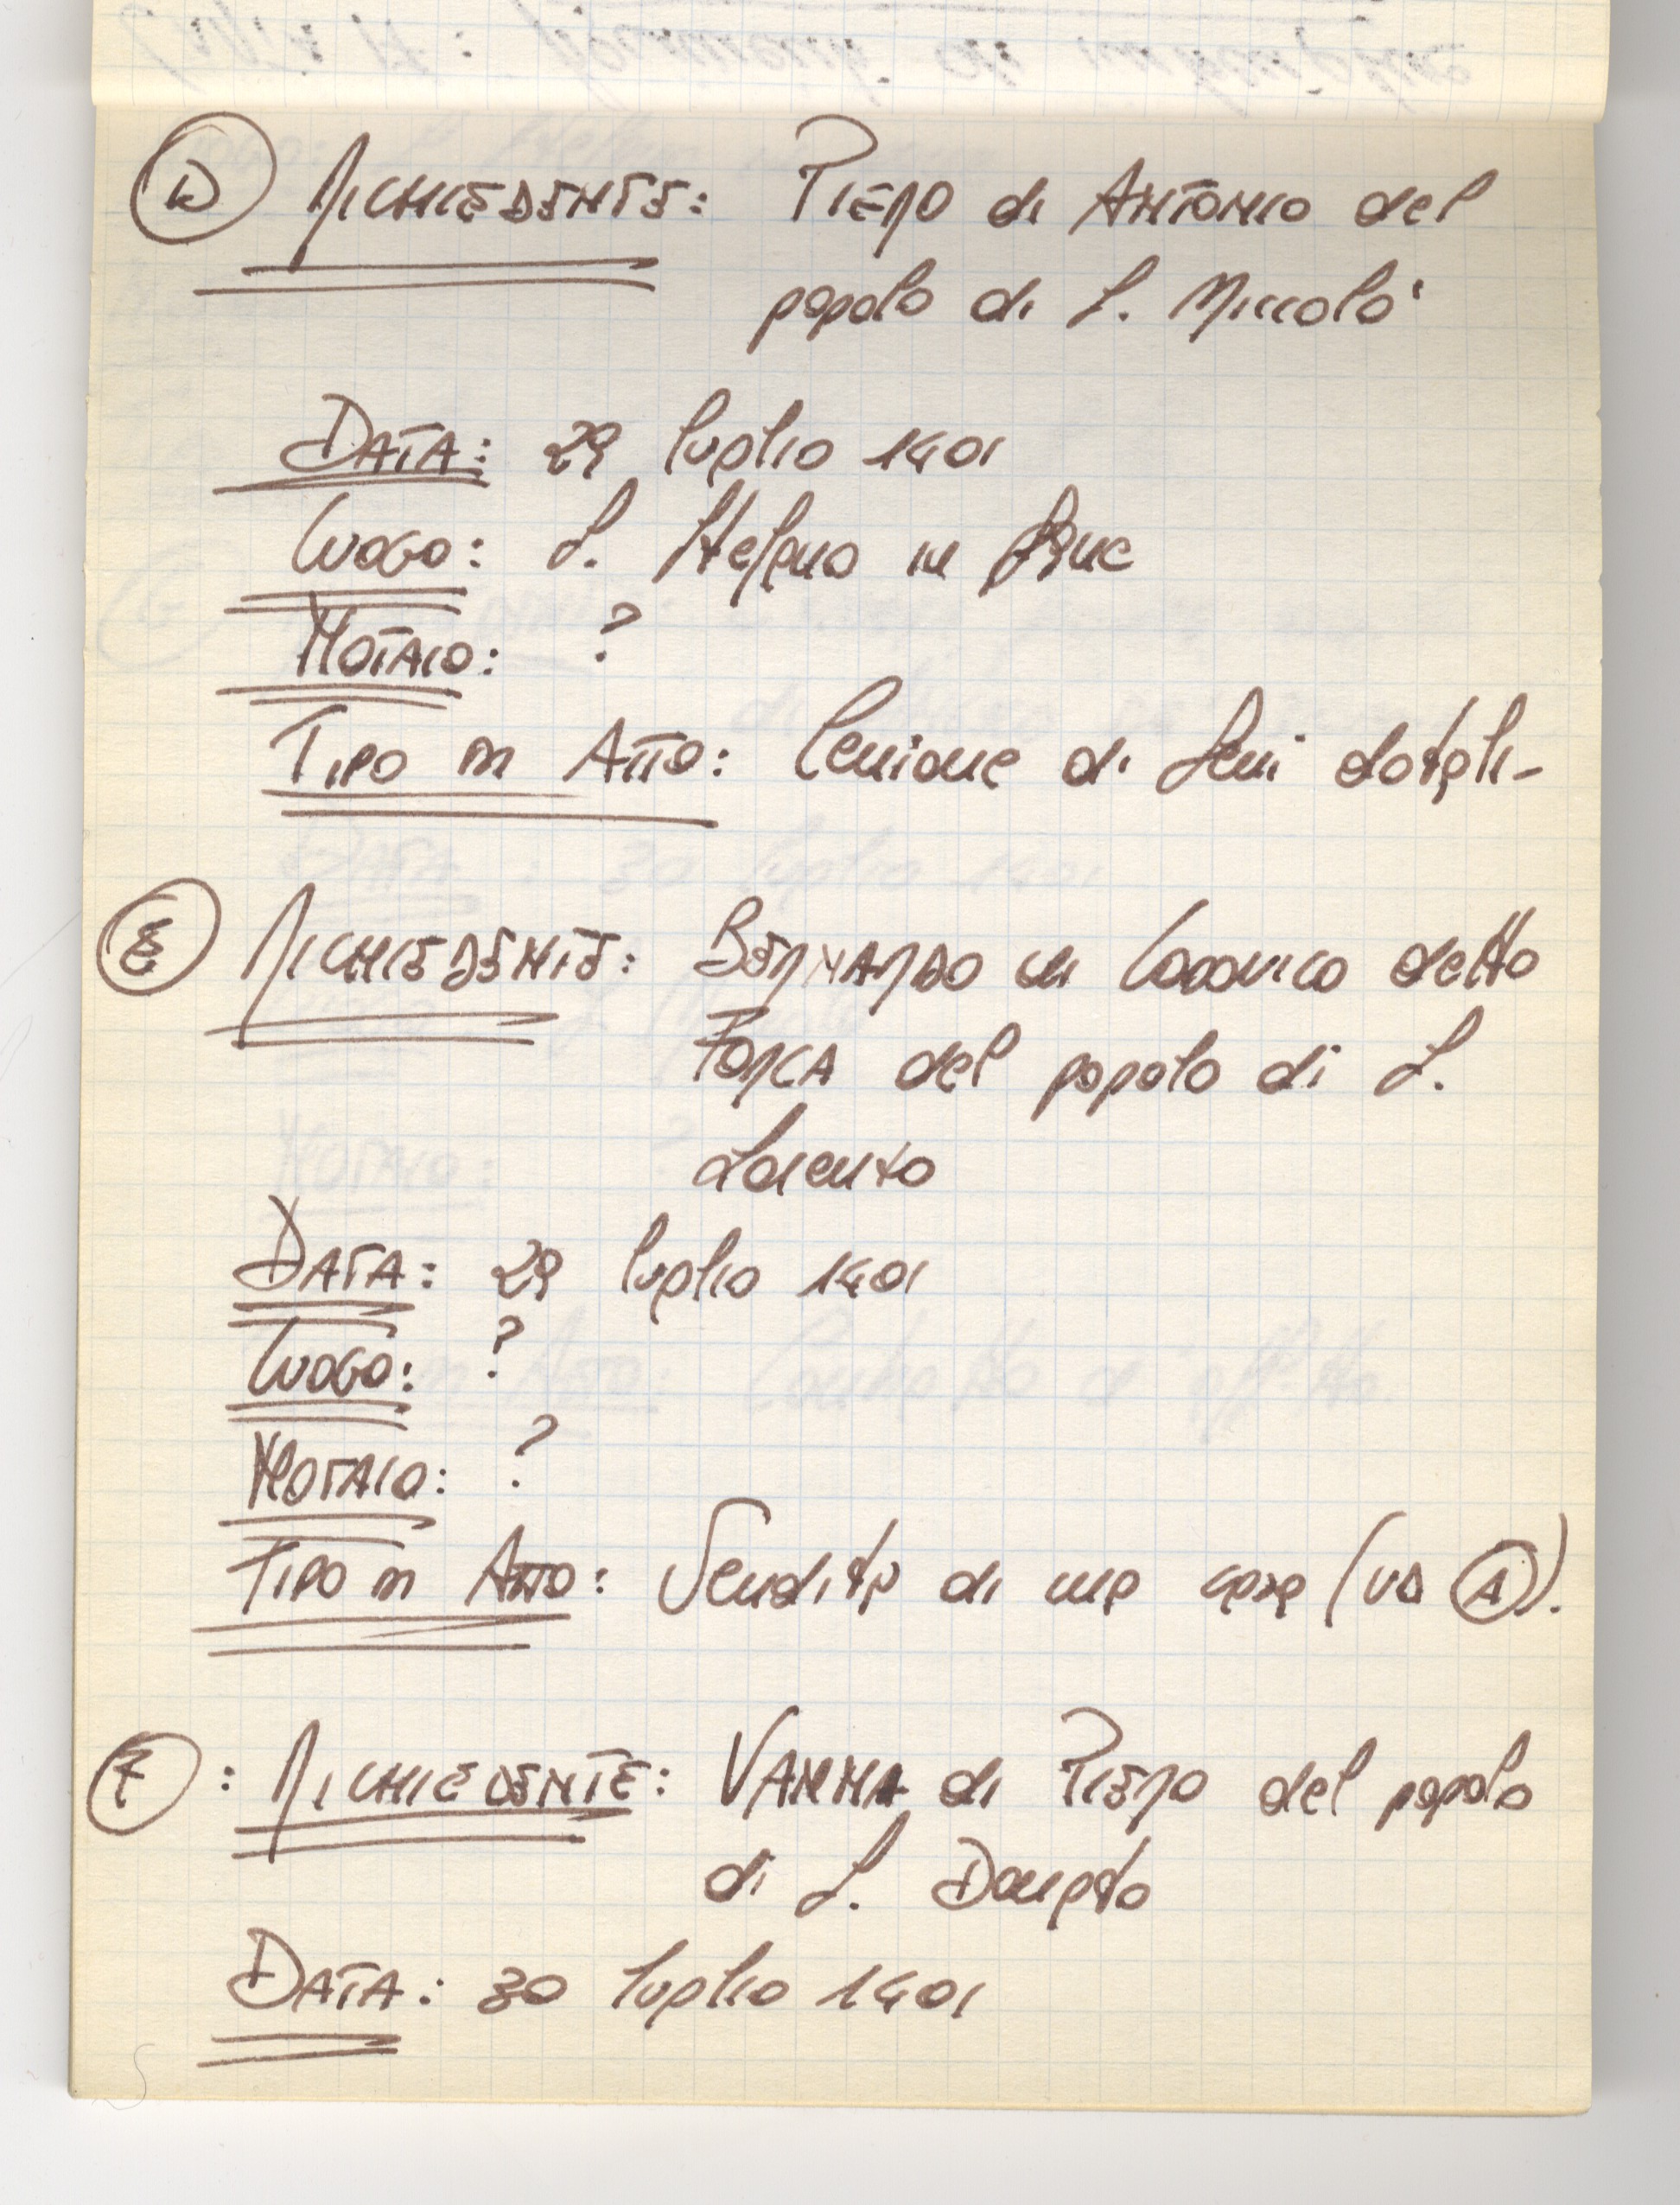 D RICHIEDENTE: PIERO di ANTONIO del
popolo di S. Niccolò
DATA: 29 luglio 1401
LUOGO: S. Stefano in
NOTAIO: ?
TIPO DI ATTO: Cessione di beni dotali-
E RICHIEDENTE: BERNARDO di LODOVICO detto
FORCA del popolo di S.
Lorenzo
DATA: 29 luglio 1401
LUOGO: ?
NOTAIO: ?
TIPO DI ATTO: Vendita di una casa (VD A).
F: RICHIEDENTE: VANNA di PIERO del popolo
di S. Donato
DATA: 30 luglio 1401